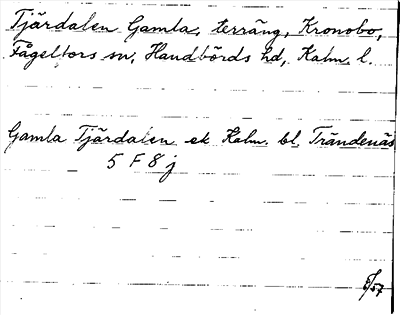 Tjärdalen Gamla, terräng, Kronobo,
Fågelfors sn, Handbörds hd, Kalm. l.
Gamla Tjärdalen ek Kalm. bl. Trändenäs
5 F 8 j
/57